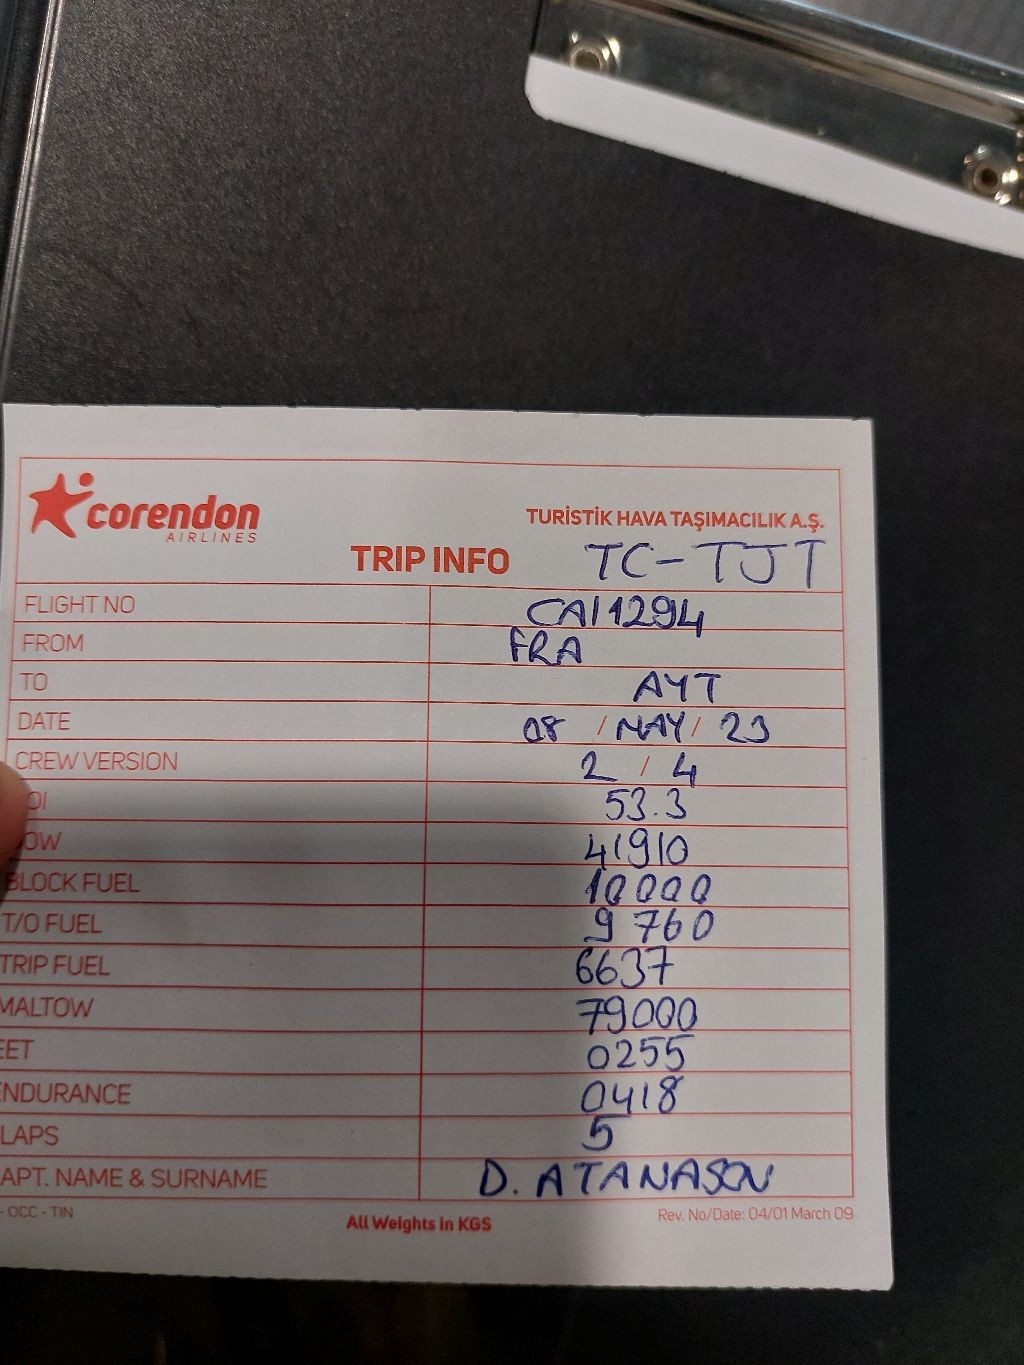 corendon
AIRLINES
TURİSTİK HAVA TAŞIMACILIK A.Ş.
TRIP INFO TC-TJT
FLIGHT NO CAI1294
FROM FRA
TO AYT
DATE 08 / MAY / 23
CREW VERSION 2 / 4
OI 53.3
OW 41910
BLOCK FUEL 10000
T/O FUEL 9760
TRIP FUEL 6637
MALTOW 79000
EET 0255
ENDURANCE 0418
LAPS 5
APT. NAME & SURNAME D. ATANASOV
- OCC - TIN
All Weights in KGS
Rev. No/Date: 04/01 March 09